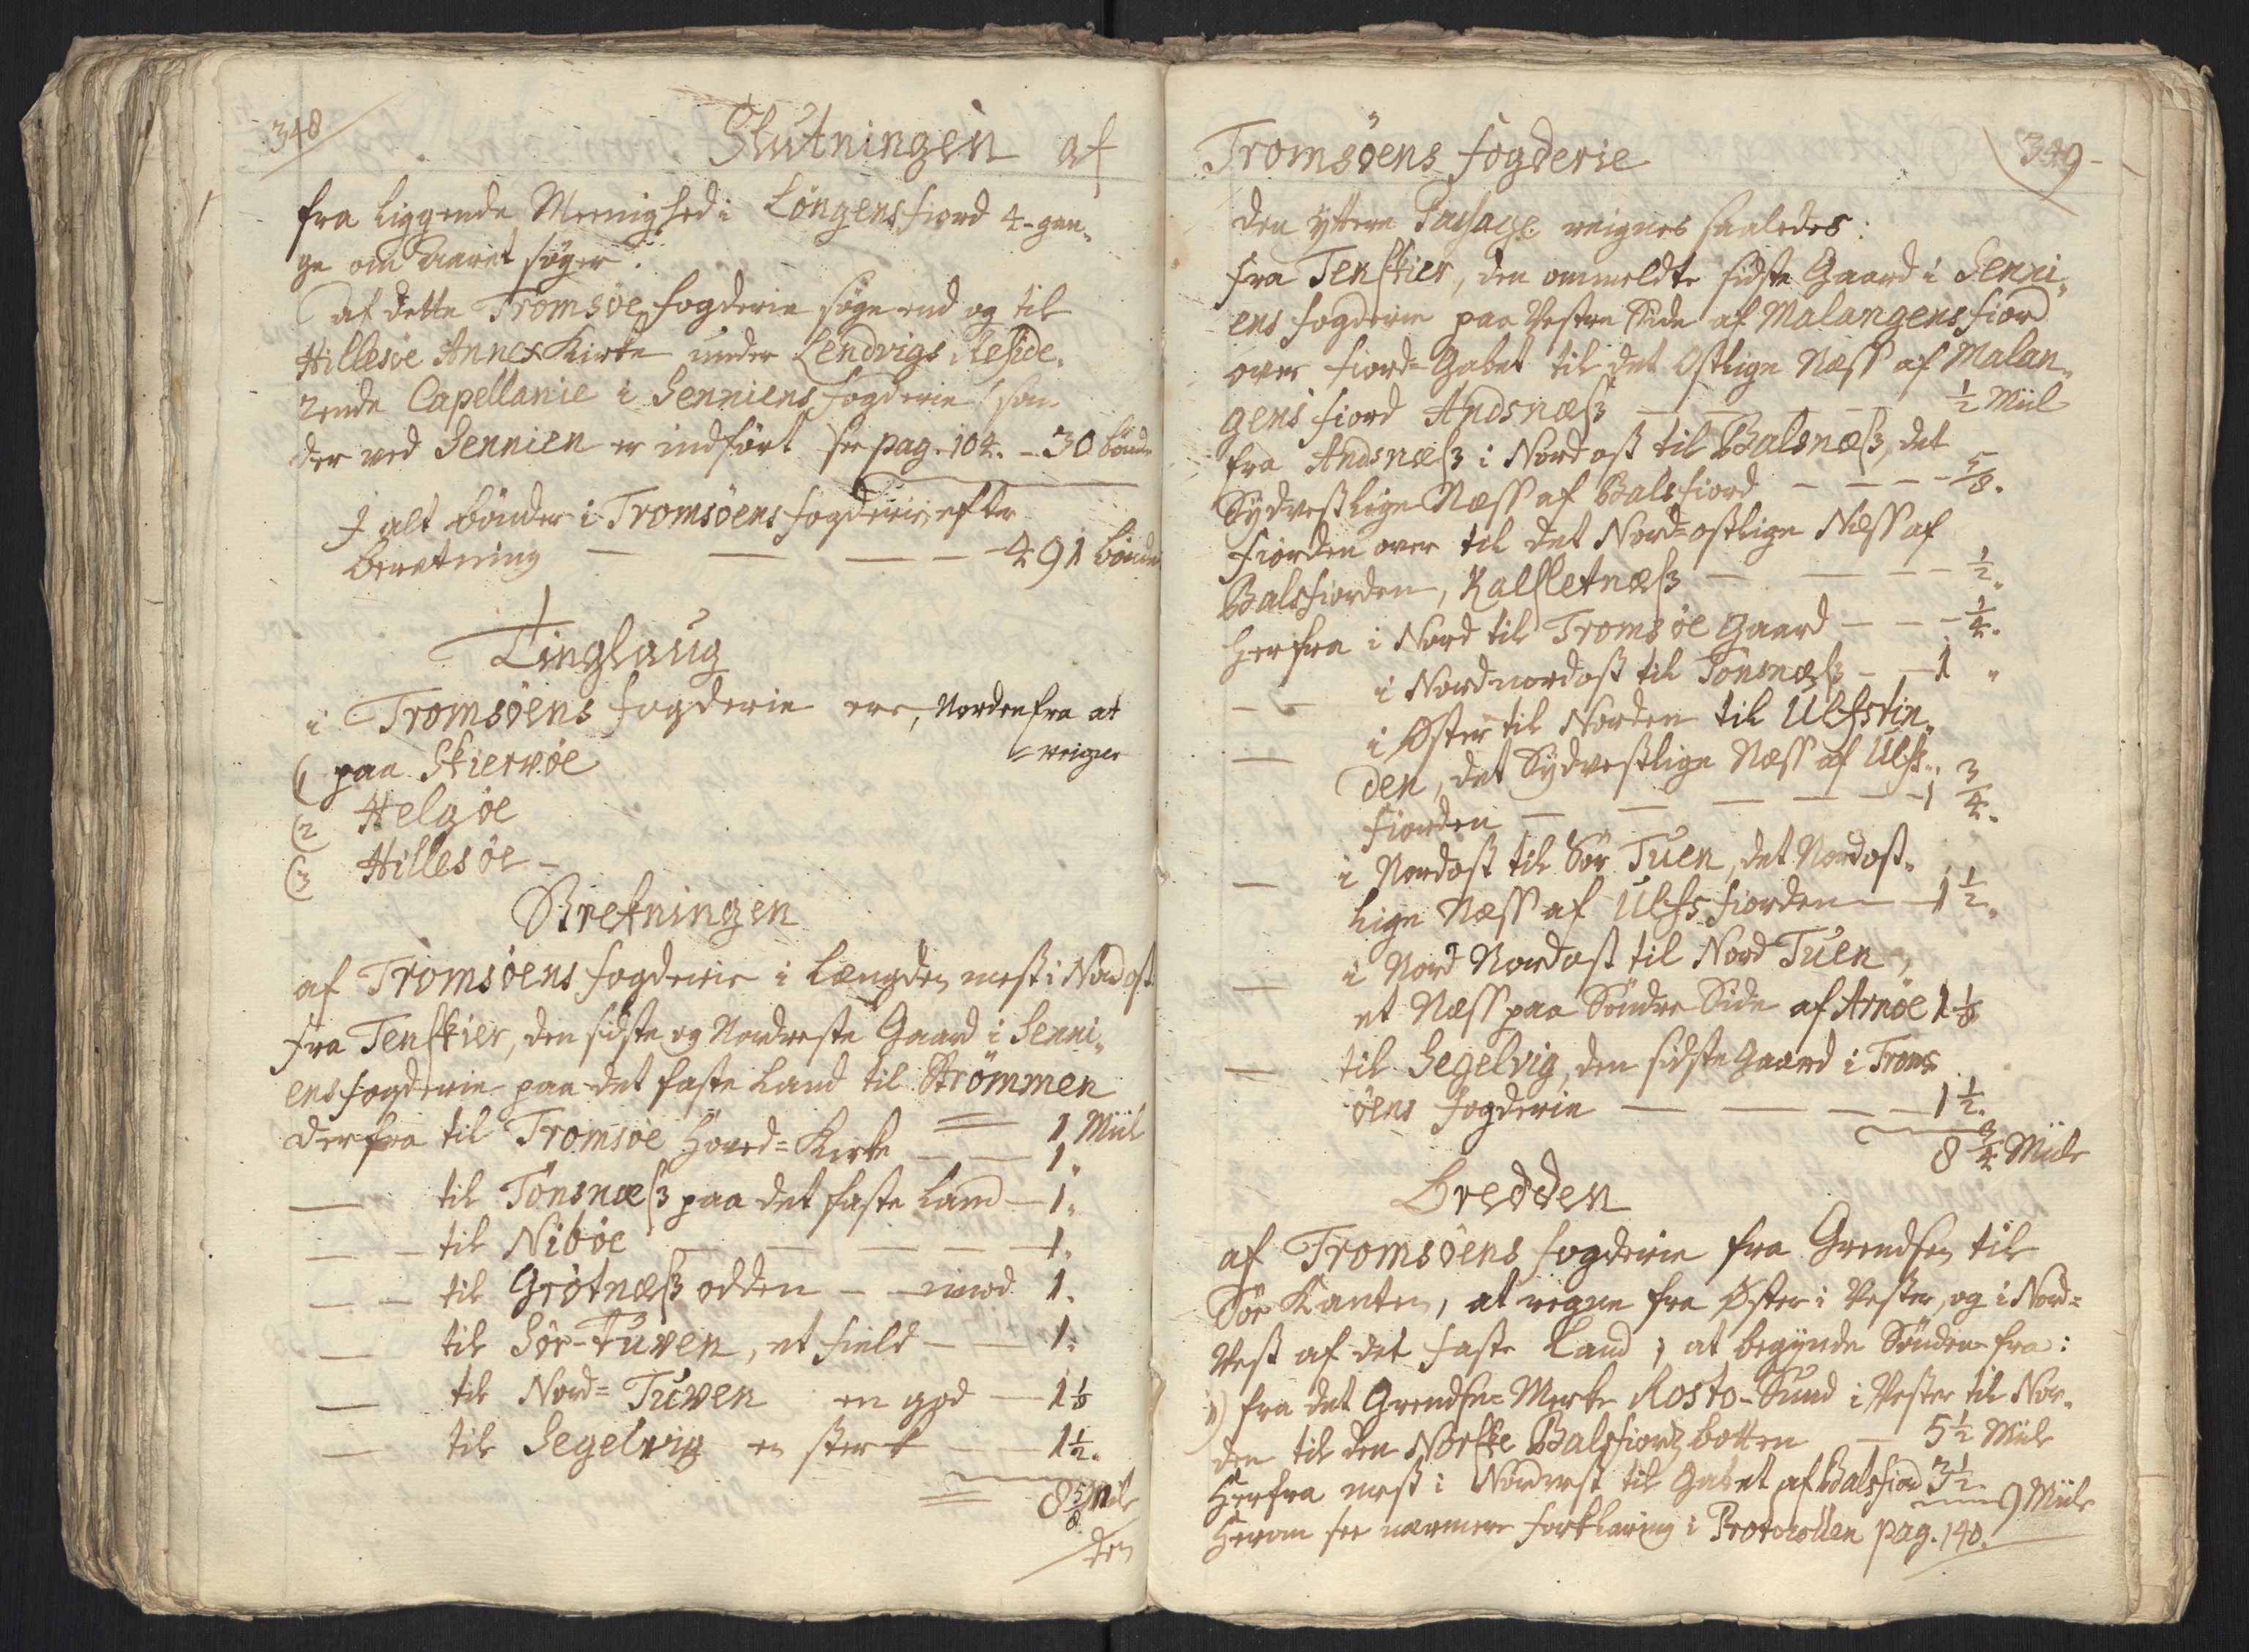 348
Slutningen af
fra liggende Meenighed i Lÿngensfiord 4-gan„
ge om aaret søger.
af dette Tromsøe fogderie søge end og til
Hillesøe Annex Kirke under Lendvigs Reside„
rende Capellanie i Senniens fogderie som
der ved Sennien er indført see pag. 104. - 30 bønder
I alt bønder i Tromsøens fogderie efter
beretning — — — — 491 bønder
Tinglaug
i Tromsøens fogderie ere, Nordenfra at
reigne
(1 paa Skiervøe
(2 Helgøe
(3 Hillesøe -
Stretningen
af Tromsøens fogderie i Længden mest i Nordost
fra Tenskier, den sidste og Nordreste Gaard i Senni„
ens fogderie paa det faste Land til Strømmen
= 1 Miil
derfra til Tromsøe Hoved=Kirke — — 1„
— til Tønsnæss paa det faste Land — 1„
— — til Nibøe — — — — — 1.
— — til Grøtnæss odden — — imod 1.
— til Sør-Tuven, et field — — 1.
— til Nord=Tuven en god — 1 1/8
— til Segelvig en sterk — — 1 1/2.
= 8 5/8 Miile
den
Tromsøens fogderie
349-
den ÿttere Passage reignes saaledes:
fra Tenskier, den ommeldte sidste Gaard i Senni„
ens fogderie paa Vestre Side af Malangens fiord
over fiord=Gabet til det Ostlige Næss af Malan„
gens fiord Andsnæss — — — — 1/2 Miil
fra Andsnæss i Nordost til Balsnæss, det
Sydvestlige Næss af Balsfiord — — — — 5/8.
fiorden over til det Nord=ostlige Næss af
Balsfiorden, Kalsletnæss — — — — 1/2„
herfra i Nord til Tromsøe Gaard — — — 1/4.
— — i Nordnordost til Tønsnæss — — 1 „
— i Øster til Norden til Ulfstin„
den, det Sydvestlige Næss af Ulfs„
fiorden — — — — — — 1 3/4.
— i Nordost til Sør Tuen, det Nordost„
lige Næss af Ulfsfiorden — 1 1/2„
— i Nord Nordost til Nord Tuen,
et Næss paa Søndre Side af Arnøe 1 1/8
— til Segelvig, den sidste Gaard i Troms
øens fogderie — — — — 1 1/2.
8 3/4 Miile
Bredden
af Tromsøens fogderie fra Grendsen til
Søe Kanten, at regne fra Øster i Vester, og i Nord=
Vest af det faste Land, at begÿnde Sønden fra:
1) fra det Grendse=Merke Rosto-Sund i Vester til Nor„
den til den Norske Balsfiordbotten — 5 1/2 Miile
Herfra mest i Nordvest til Gabet af Balsfiord 3 1/2.
9 Miile
Herom see nærmere forklaring i Protocollen pag. 140.